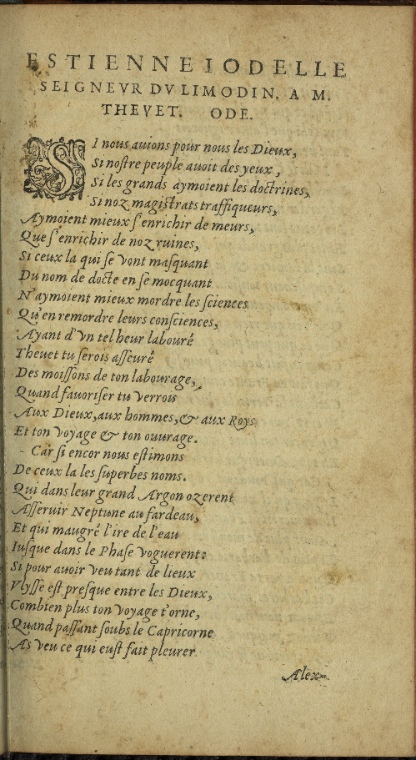 ESTIENNE IODELLE
SEIGNEVR DV LIMODIN. A M.
THEVET. ODE.
SI nous auions pour nous les Dieux,
Si nostre peuple auoit des yeux,
Si les grands aymoient les doctrines,
Si noz magistrats traffiqueurs,
Aymoient mieux s'enrichir de meurs,
Que s'enrichir de noz ruines,
Si ceux la qui se vont masquant
Du nom de docte en se mocquant
N'aymoient mieux mordre les sciences
Qu'en remordre leurs consciences,
Ayant d'vn tel heur labouré
Theuet tu serois asseuré
Des moissons de ton labourage,
Quand fauoriser tu verrois
Aux Dieux, aux hommes, & aux Roys
Et ton voyage & ton ouurage.
Car si encor nous estimons
De ceux la les superbes noms.
Qui dans leur grand Argon ozerent
Asseruir Neptune au fardeau,
Et qui maugré l'ire de l'eau
Iusque dans le Phase voguerent:
Si pour auoir veu tant de lieux
Vlysse est presque entre les Dieux,
Combien plus ton voyage t'orne,
Quand passant soubs le Capricorne
As veu ce qui eust fait pleurer
Alex-